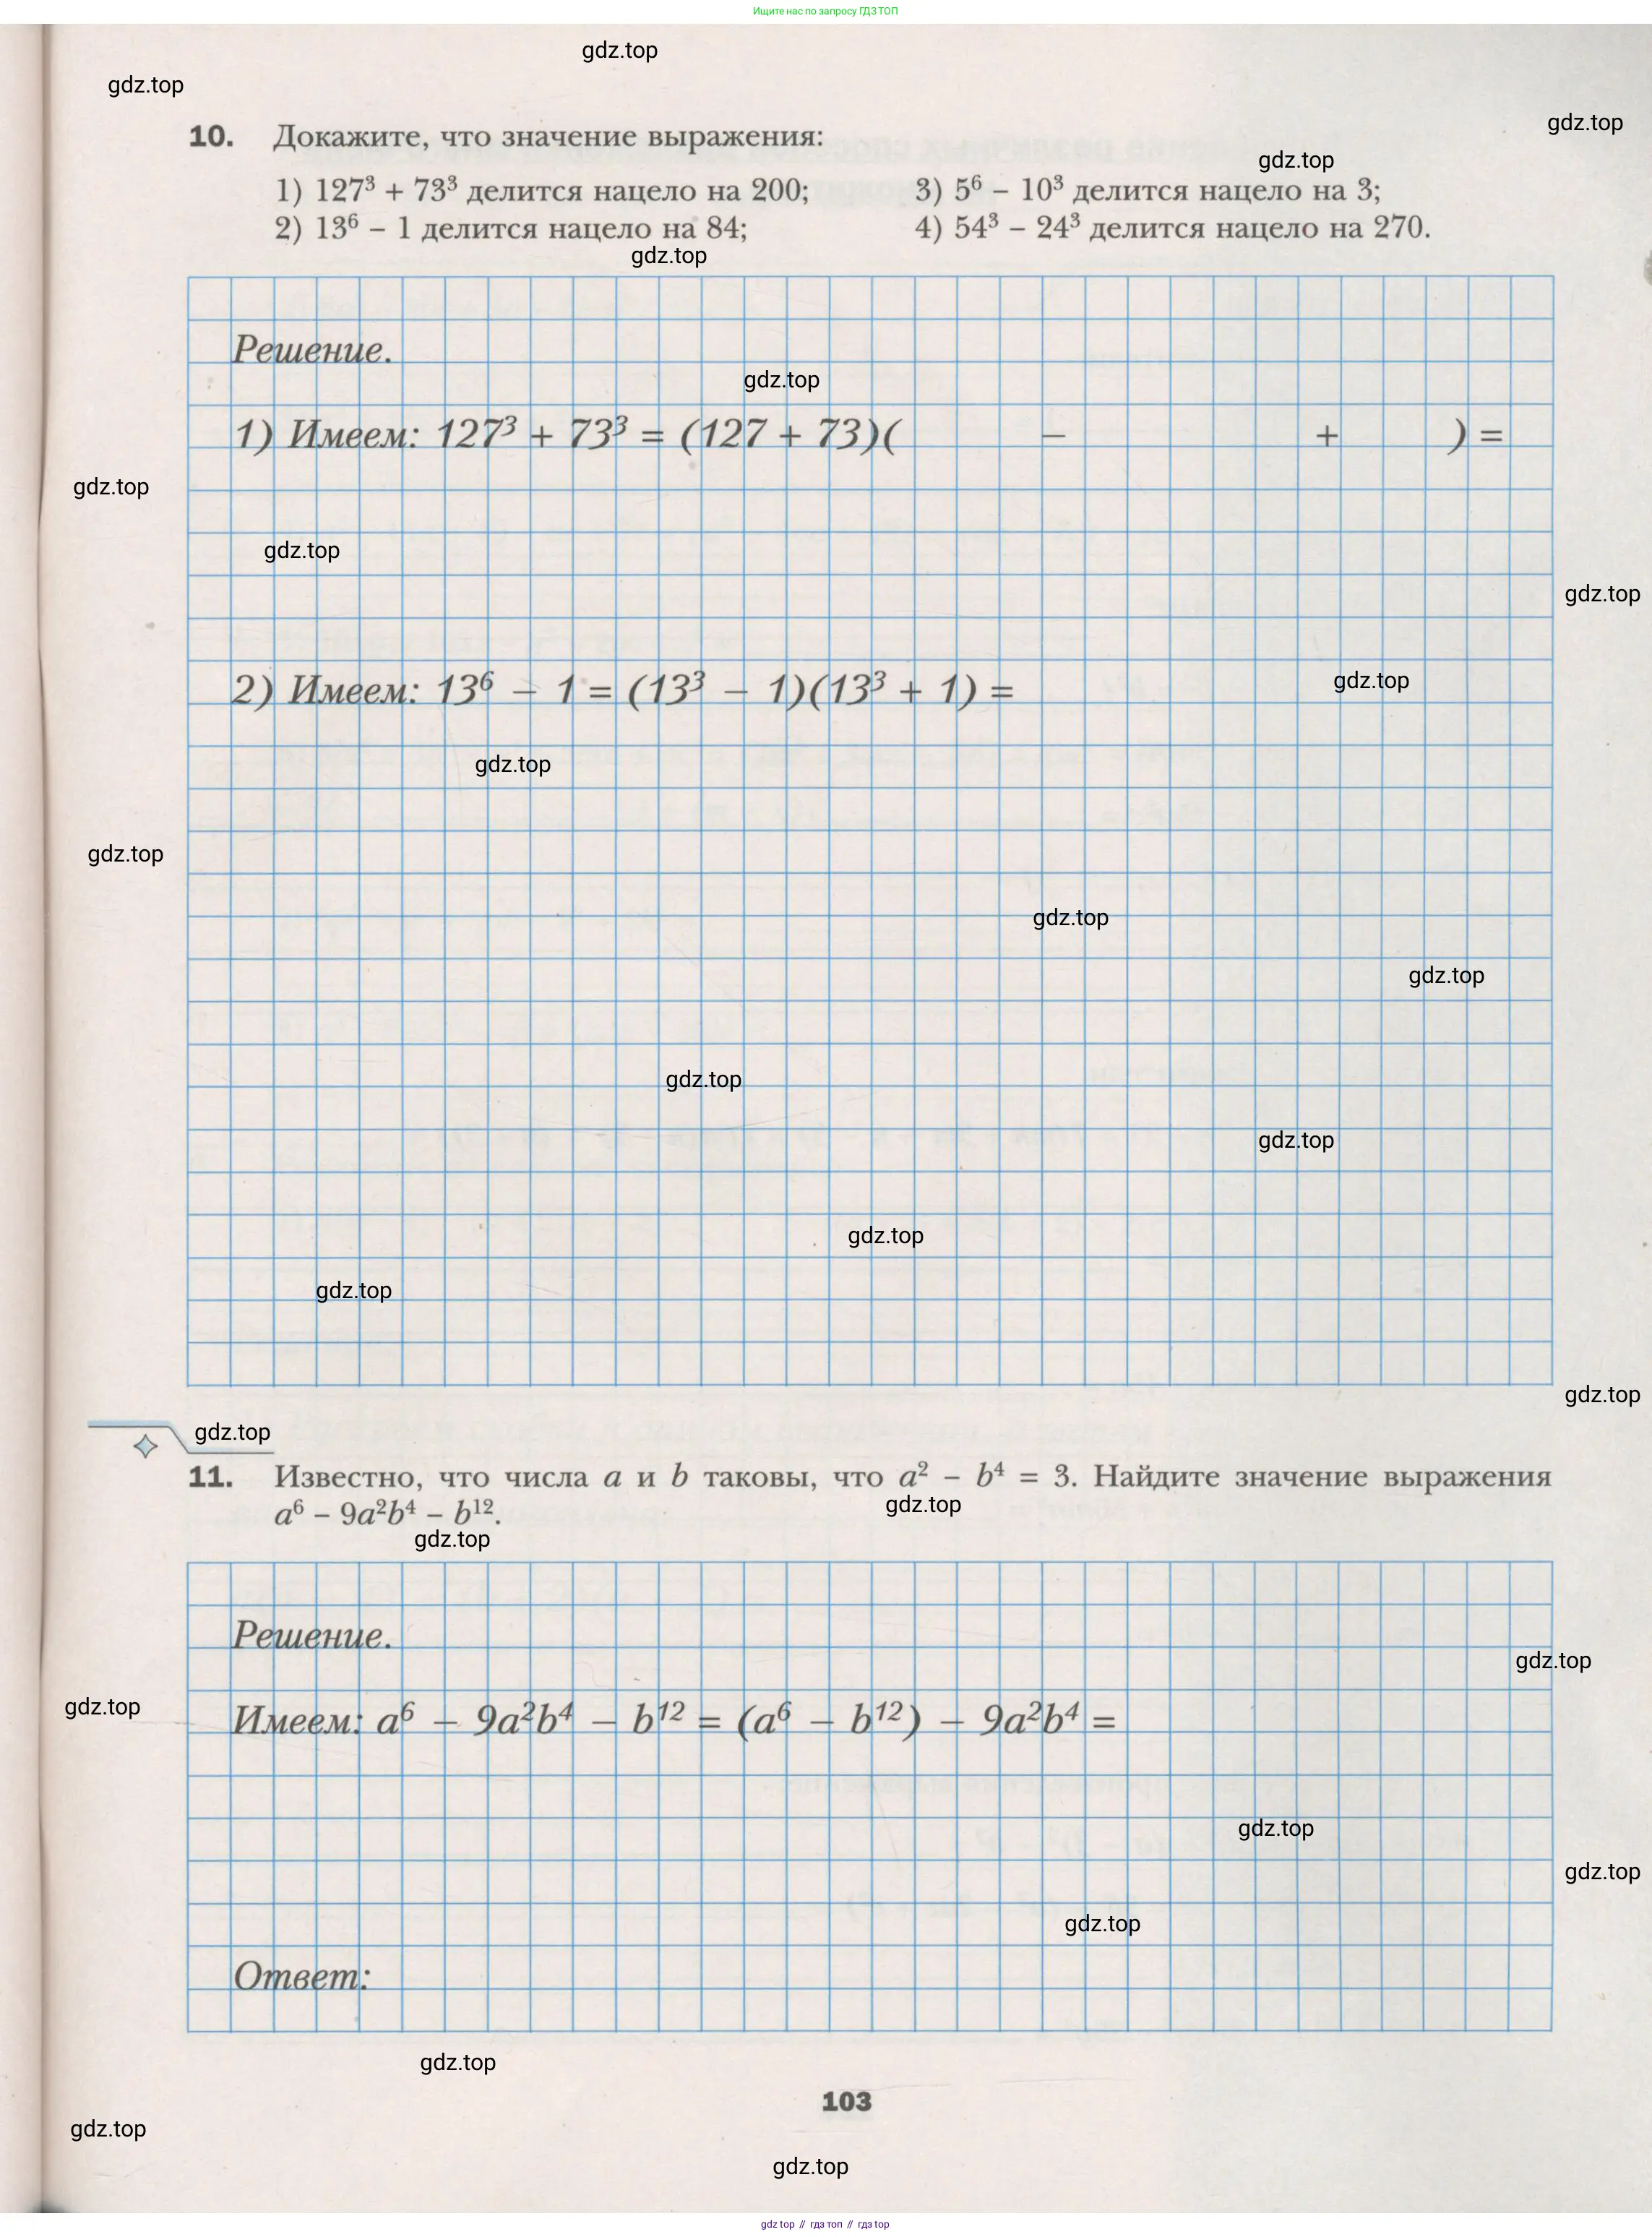 Ищите нас по запросу ГДЗ ТОП
gdz.top
gdz.top
gdz.top
10. Докажите, что значение выражения:
gdz.top
1) 127³ + 73³ делится нацело на 200; 3) 5⁶ – 10³ делится нацело на 3;
2) 13⁶ – 1 делится нацело на 84; 4) 54³ – 24³ делится нацело на 270.
gdz.top
Решение.
gdz.top
1) Имеем: 127³ + 73³ = (127 + 73)( – + ) =
gdz.top
gdz.top
gdz.top
2) Имеем: 13⁶ – 1 = (13³ – 1)(13³ + 1) =
gdz.top
gdz.top
gdz.top
gdz.top
gdz.top
gdz.top
gdz.top
gdz.top
gdz.top
gdz.top
gdz.top
11. Известно, что числа a и b таковы, что a² – b⁴ = 3. Найдите значение выражения
gdz.top
a⁶ – 9a²b⁴ – b¹².
gdz.top
Решение.
gdz.top
gdz.top
Имеем: a⁶ – 9a²b⁴ – b¹² = (a⁶ – b¹²) – 9a²b⁴ =
gdz.top
gdz.top
gdz.top
Ответ:
gdz.top
103
gdz.top
gdz.top
gdz top // гдз топ // гдз top